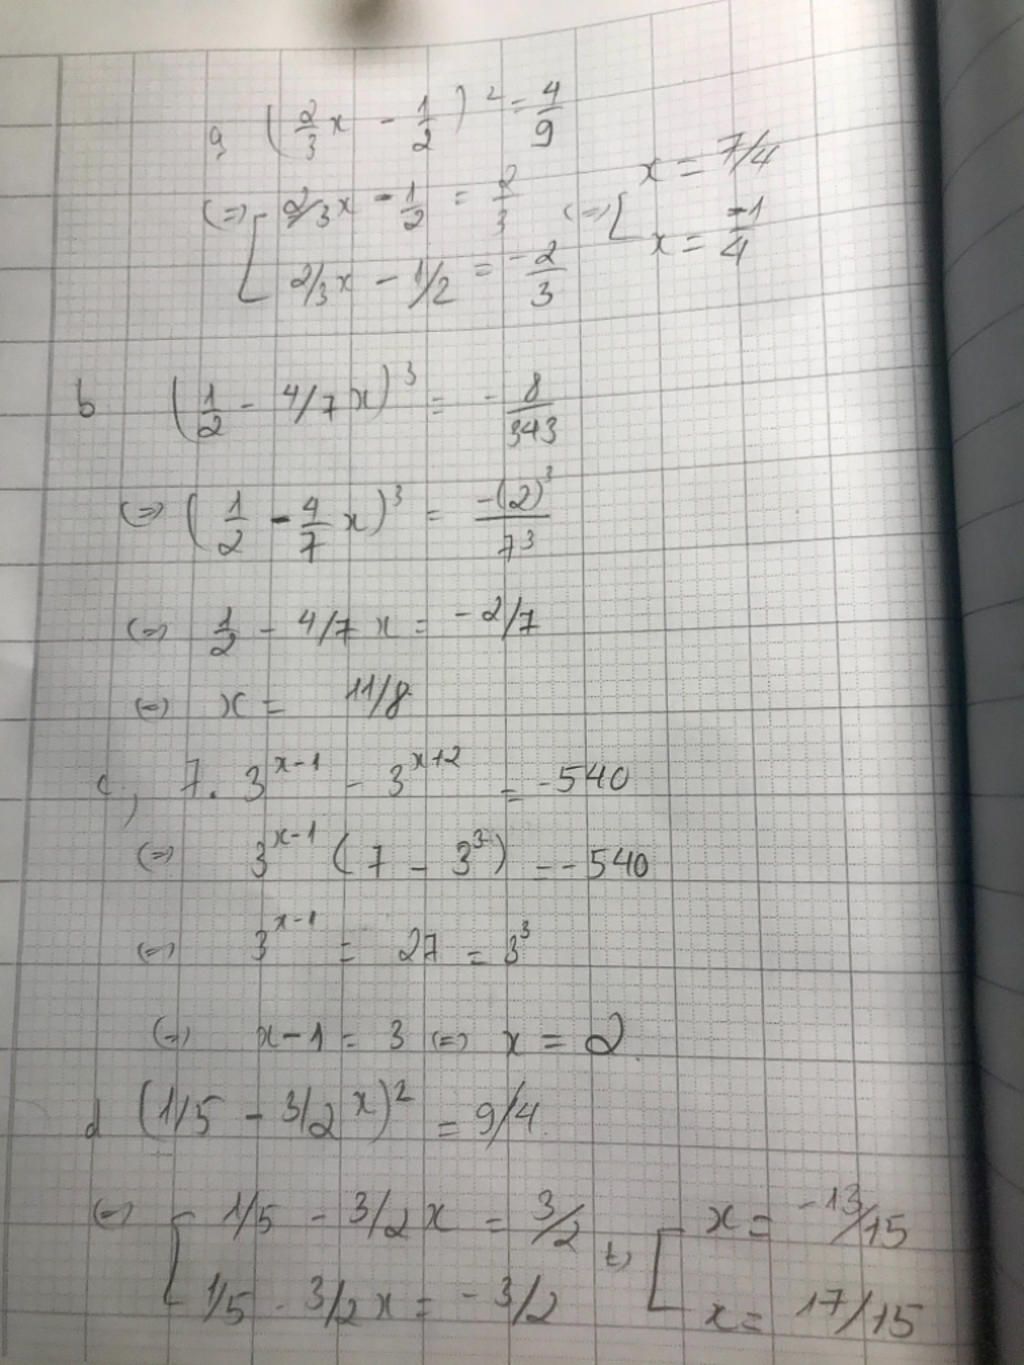 a, (2/3 x - 1/2)² = 4/9
(=) [ 2/3x - 1/2 = 2/3 (=) [ x = 7/4
2/3x - 1/2 = -2/3 x = -1/4
b (1/2 - 4/7x)³ = -8/343
(=) (1/2 - 4/7 x)³ = -(2)³/7³
(=) 1/2 - 4/7 x = -2/7
(=) x = 11/8
c, 7. 3^(x-1) - 3^(x+2) = -540
(=) 3^(x-1) (7 - 3³) = -540
(=) 3^(x-1) = 27 = 3³
(=) x-1 = 3 (=) x = 2
d (1/5 - 3/2 x)² = 9/4
(=) [ 1/5 - 3/2x = 3/2 [ x = -13/15
1/5 - 3/2x = -3/2 x = 17/15